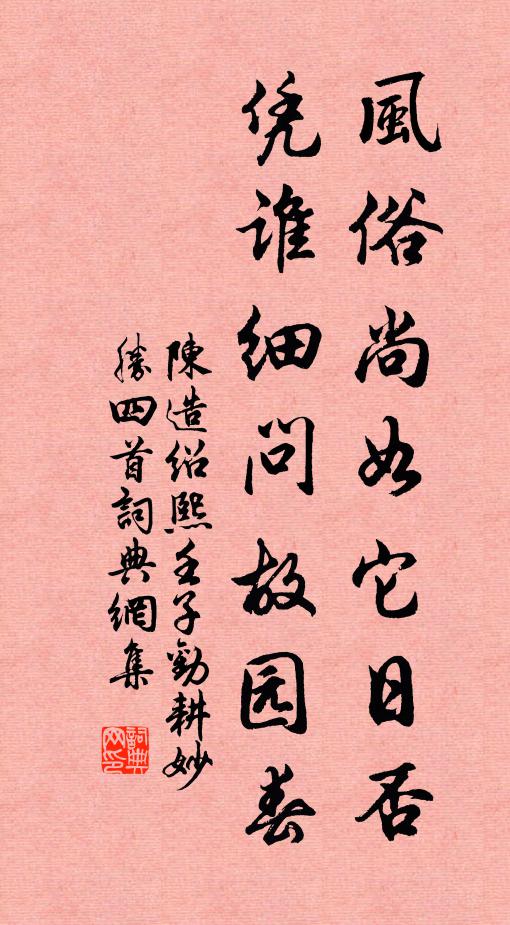 風俗尚如它日否
凭谁细问故园春
陳造绍熙壬子勸耕妙
勝四首詞典網集
詞典網印